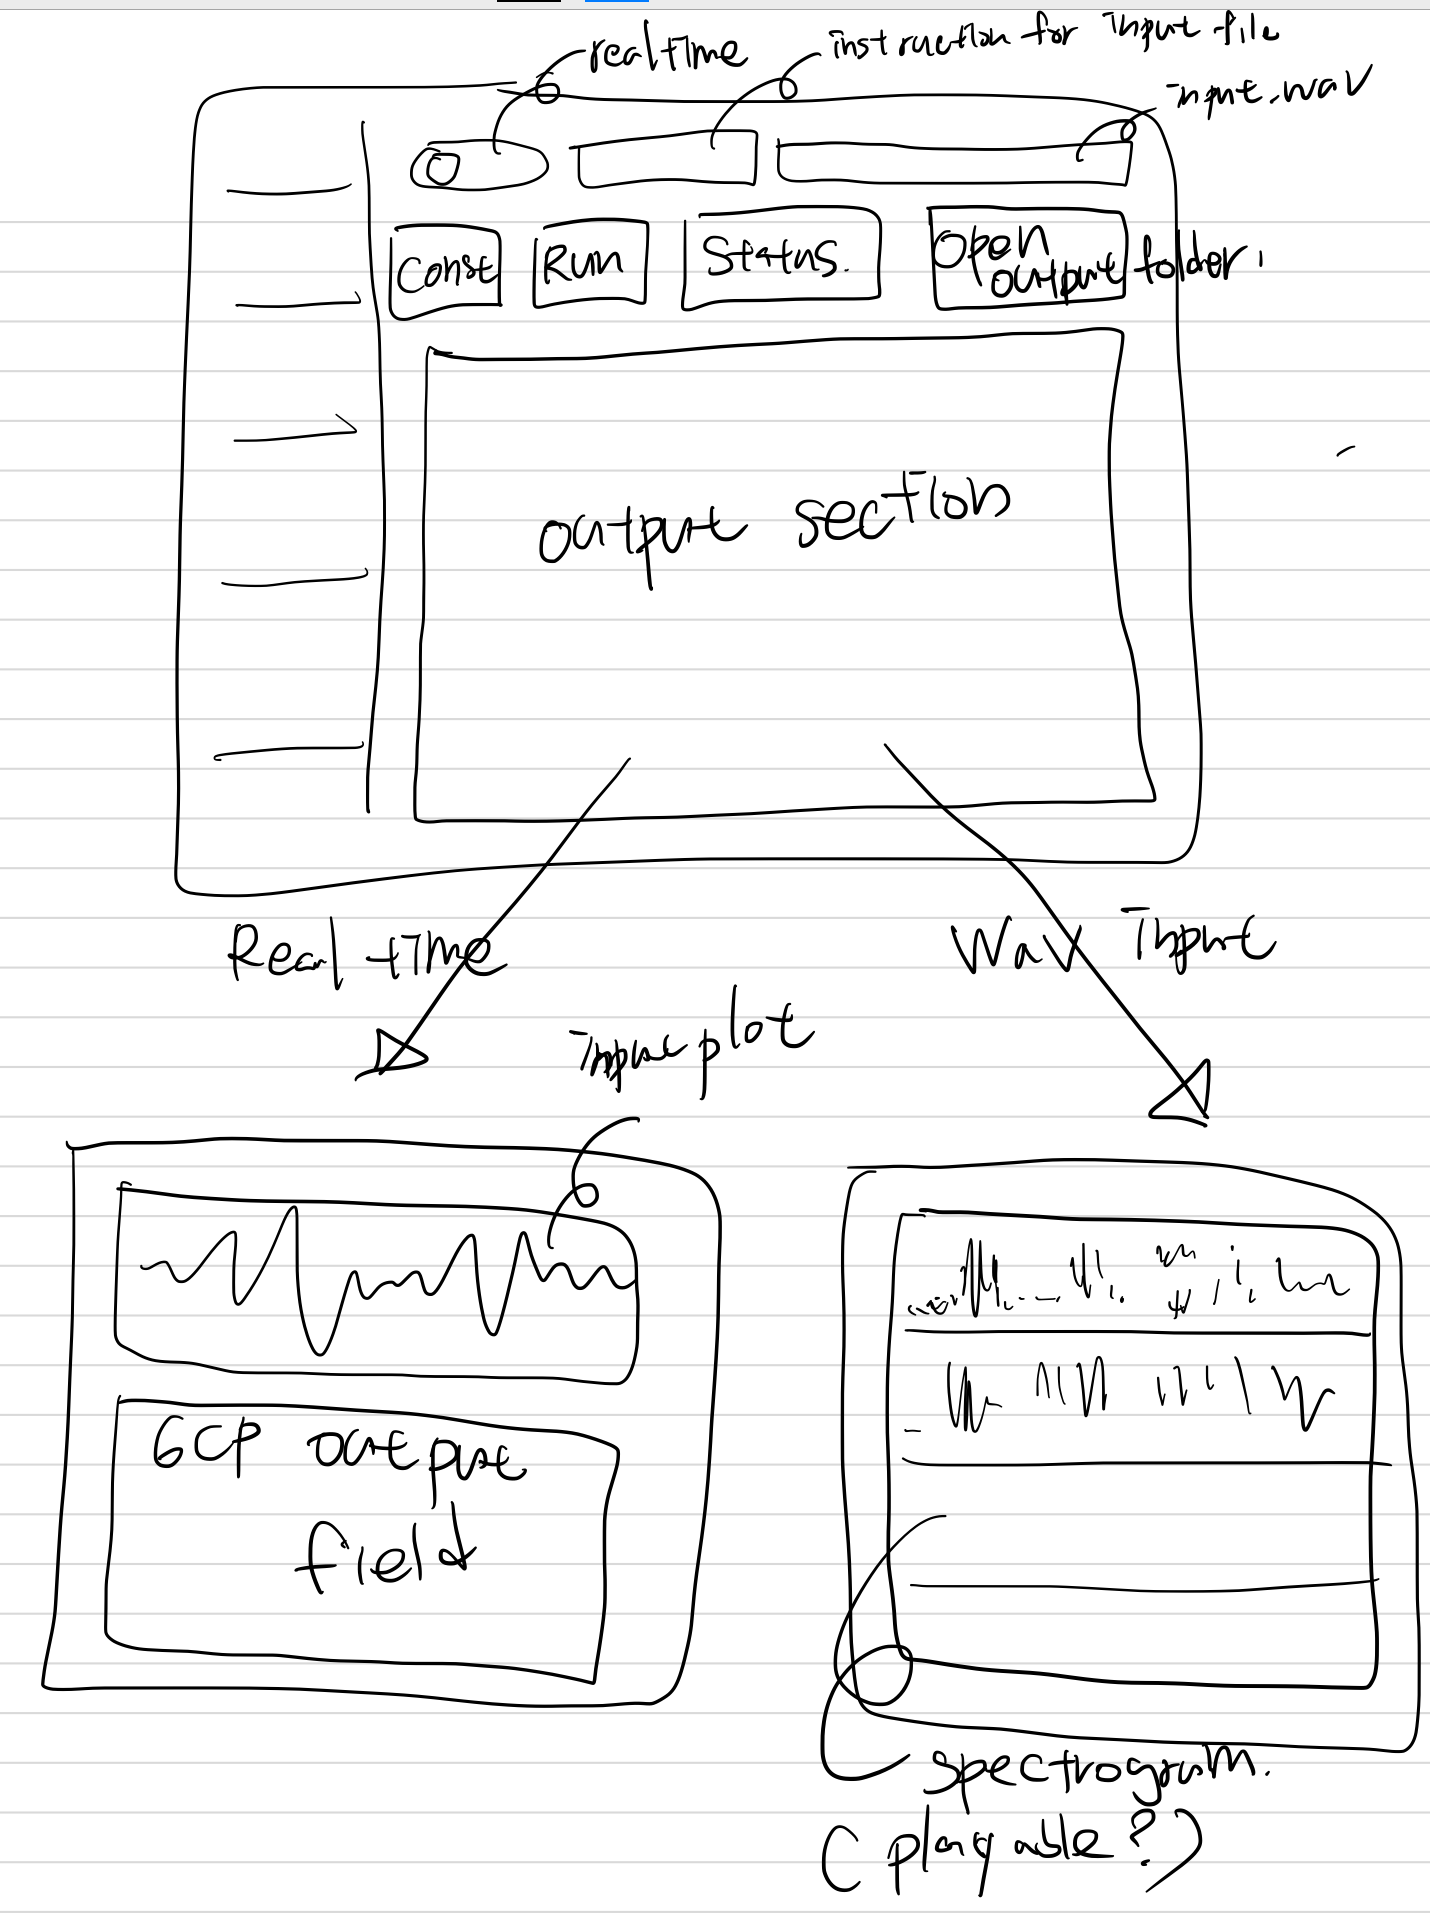 realtime
instruction for input file
input.wav
Const
Run
Status.
Open
output folder.
output section
Real time
Wav Input
input plot
GCP output
field
spectrogram.
(playable?)